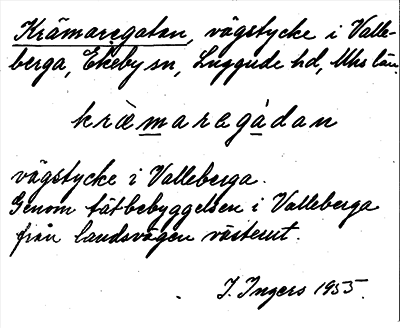 Krämaregatan, vägstycke i Valle-
berga, Ekeby sn, Luggude hd, Mhs län.
kràmaregádan
vägstycke i Valleberga.
Genom tätbebyggelsen i Valleberga
från landsvägen västerut.
I. Ingers 1955.